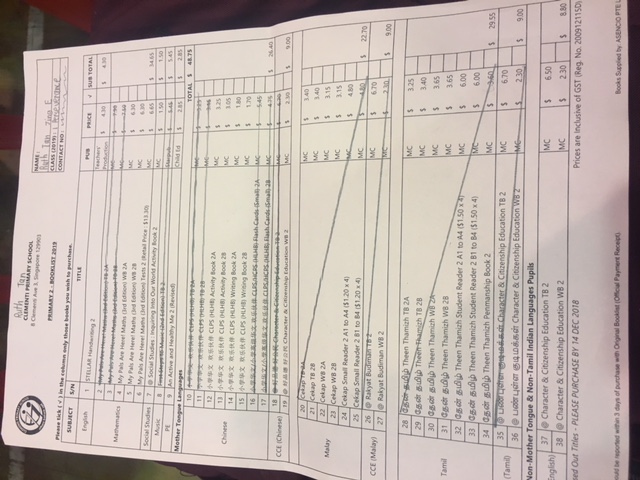 Ruth Tan
CLEMENTI PRIMARY SCHOOL
8 Clementi Ave 3, Singapore 129903
PRIMARY 2 - BOOKLIST 2019
NAME:
Ruth Tan E
CLASS (2019): 1 Perseverance
CONTACT NO:
Please tick ( √ ) in the column only those books you wish to purchase.
SUBJECT S/N TITLE PUB PRICE √ SUB TOTAL
English 1 STELLAR Handwriting 2 Teachers' Production $ 4.30 $ 4.30
Mathematics 2 My Pals Are Here! Maths (3rd Edition) TB 2A MC $
3 My Pals Are Here! Maths (3rd Edition) TB 2B MC $
4 My Pals Are Here! Maths (3rd Edition) WB 2A MC $ 6.30
5 My Pals Are Here! Maths (3rd Edition) WB 2B MC $ 6.30
6 My Pals Are Here! Maths (3rd Edition) Tests 2 (Retail Price : $13.30) MC $ 6.65 $ 34.65
Social Studies 7 @ Social Studies : Inquiring Into Our World Activity Book 2 MC $ 1.50 $ 1.50
Music 8 First Steps to Music (2nd Edition) TB 2 Starpub $ 5.45 $ 5.45
PE 9 An Active and Healthy Me 2 (Revised) Child Ed $ 2.85 $ 2.85
TOTAL $ 48.75
Mother Tongue Languages
Chinese 10 小学华文 欢乐伙伴 CLPS (HLHB) TB 2A MC $
11 小学华文 欢乐伙伴 CLPS (HLHB) TB 2B MC $
12 小学华文 欢乐伙伴 CLPS (HLHB) Activity Book 2A MC $ 3.25
13 小学华文 欢乐伙伴 CLPS (HLHB) Activity Book 2B MC $ 3.05
14 小学华文 欢乐伙伴 CLPS (HLHB) Writing Book 2A MC $ 1.80
15 小学华文 欢乐伙伴 CLPS (HLHB) Writing Book 2B MC $ 1.70
16 小学华文/小学高级华文 欢乐伙伴 CLPS/HCPS (HLHB) Flash Cards (Small) 2A MC $ 5.45
17 小学华文/小学高级华文 欢乐伙伴 CLPS/HCPS (HLHB) Flash Cards (Small) 2B MC $ 4.75 $ 26.40
CCE (Chinese) 18 @ 好品德 好公民 Character & Citizenship Education TB 2 MC $
19 @ 好品德 好公民 Character & Citizenship Education WB 2 MC $ 2.30 $ 9.00
Malay 20 Cekap TB 2A MC $ 3.40
21 Cekap TB 2B MC $ 3.40
22 Cekap WB 2A MC $ 3.15
23 Cekap WB 2B MC $ 3.15
24 Cekap Small Reader 2 A1 to A4 ($1.20 x 4) MC $ 4.80
25 Cekap Small Reader 2 B1 to B4 ($1.20 x 4) MC $ 4.80 $ 22.70
CCE (Malay) 26 @ Rakyat Budiman TB 2 MC $ 6.70
27 @ Rakyat Budiman WB 2 MC $ 2.30 $ 9.00
Tamil 28 தேன் தமிழ் Theen Thamizh TB 2A MC $ 3.25
29 தேன் தமிழ் Theen Thamizh TB 2B MC $ 3.40
30 தேன் தமிழ் Theen Thamizh WB 2A MC $ 3.65
31 தேன் தமிழ் Theen Thamizh WB 2B MC $ 3.65
32 தேன் தமிழ் Theen Thamizh Student Reader 2 A1 to A4 ($1.50 x 4) MC $ 6.00
33 தேன் தமிழ் Theen Thamizh Student Reader 2 B1 to B4 ($1.50 x 4) MC $ 6.00
34 தேன் தமிழ் Theen Thamizh Penmanship Book 2 MC $ 3.60 $ 29.55
(Tamil) 35 @ பண்புள்ள குடிமக்கள் Character & Citizenship Education TB 2 MC $ 6.70
36 @ பண்புள்ள குடிமக்கள் Character & Citizenship Education WB 2 MC $ 2.30 $ 9.00
Non-Mother Tongue & Non-Tamil Indian Languages Pupils
English) 37 @ Character & Citizenship Education TB 2 MC $ 6.50
38 @ Character & Citizenship Education WB 2 MC $ 2.30 $ 8.80
sed Out Titles - PLEASE PURCHASE BY 14 DEC 2018
Prices are Inclusive of GST (Reg. No. 200912115D)
ould be reported within 3 days of purchase with Original Booklist (Official Payment Receipt).
Books Supplied by: ASENCIO PTE L